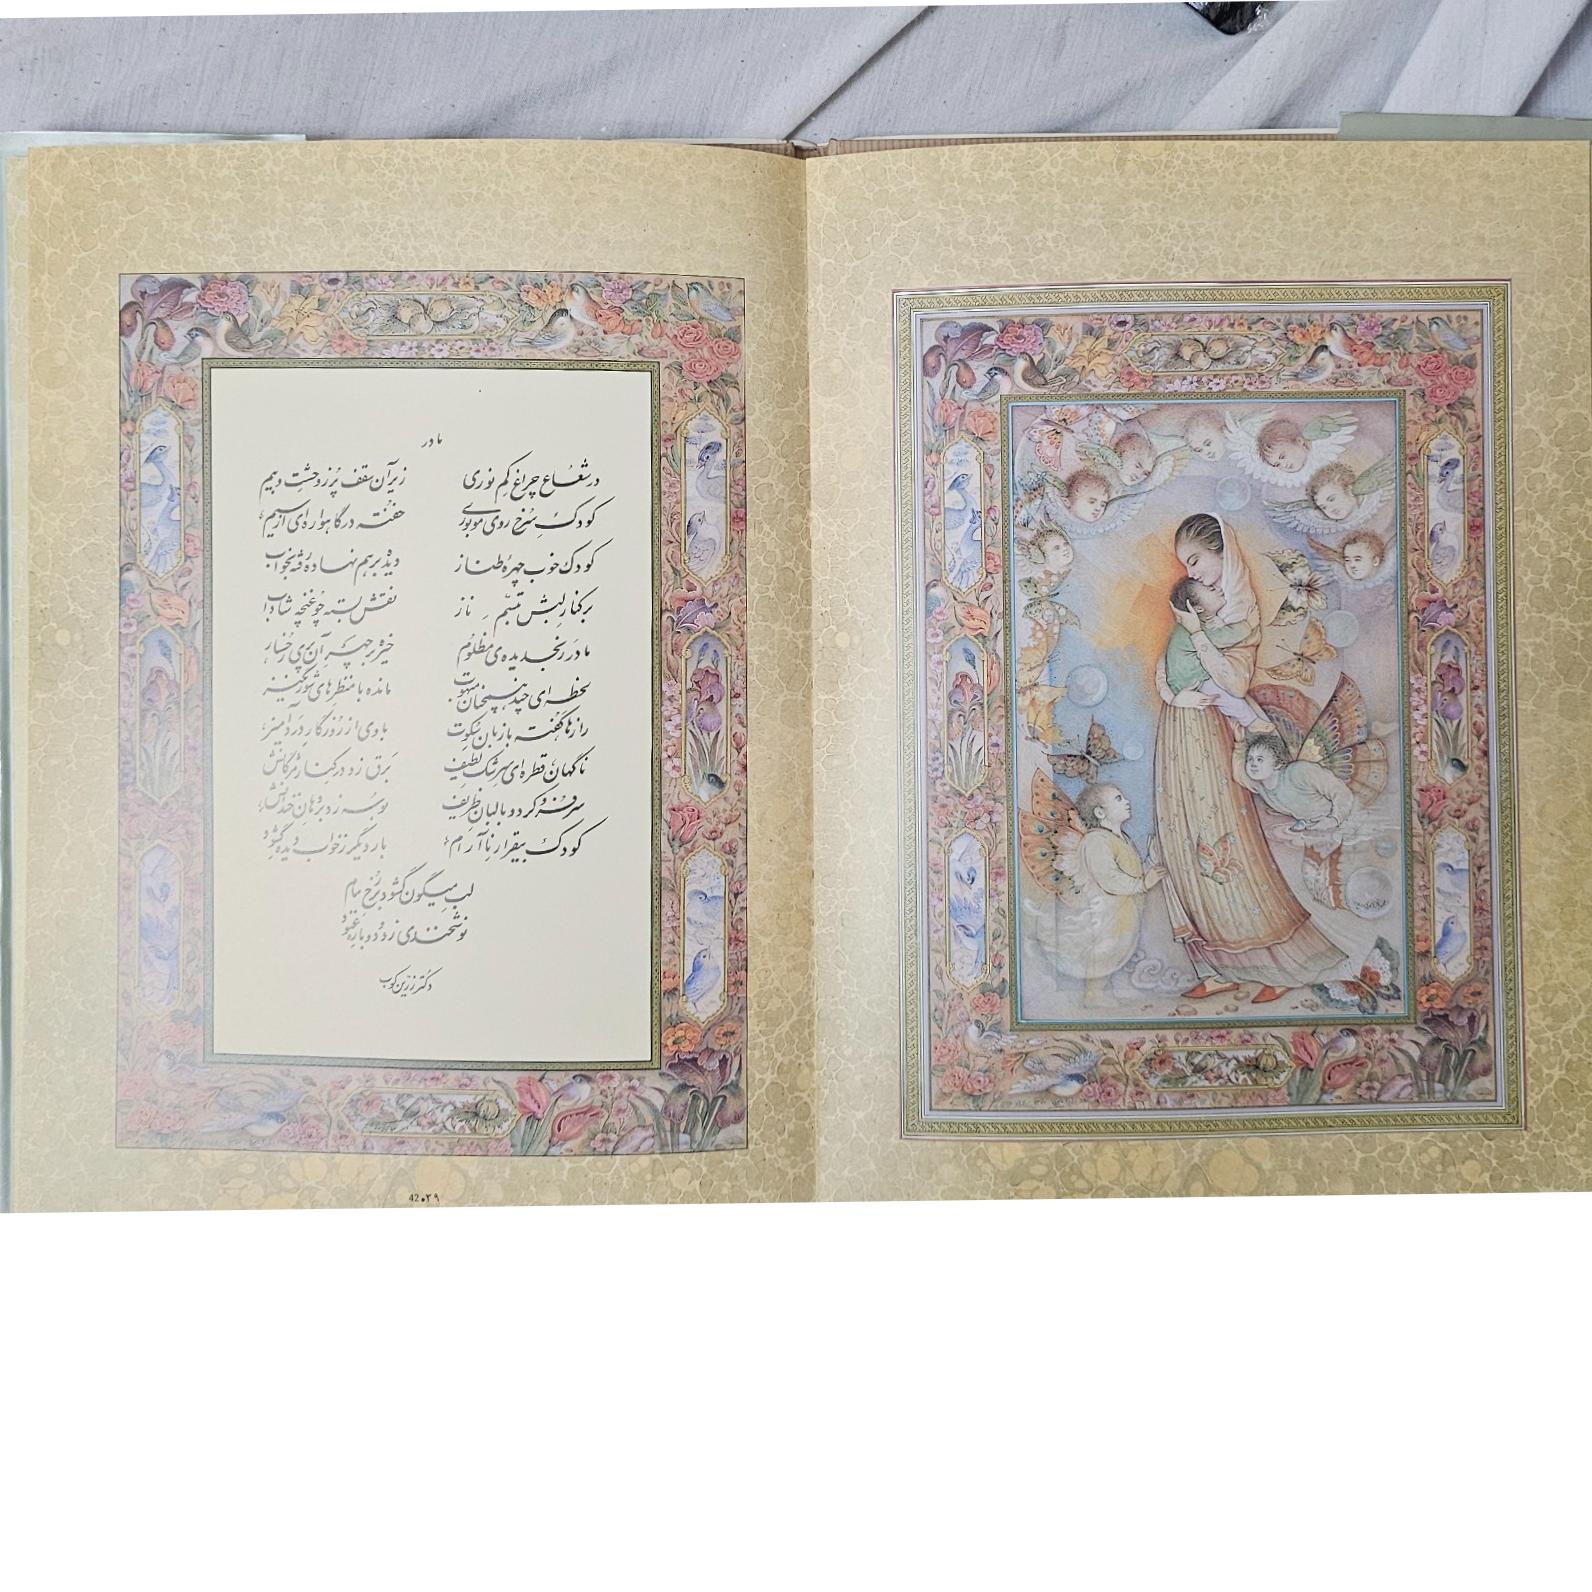 مادر
در شعاع چراغ کم نوری زیر آن سقف پُر ز وحشت و بیم
کودک سرخ روی موبوری خفته در گاهواره‌ای از سیم
کودک خوب چهرهٔ طناز دیده بر هم نهاده رفته بخواب
بر کنار لبش تبسّم ناز نقش بسته چو غنچه شاداب
مادر رنجدیده‌ی مظلوم خیره بر چهر آن پری رخسار
لحظه‌ای چند همچنان مبهوت مانده با منظرهای شورانگیز
رازها گفته با زبان سکوت با وی از روزگار درد آمیز
ناگهان قطره‌ای سرشک لطیف برق زد در کنار مژگانش
سر فرو کرد و با لبان ظریف بوسه زد بر دهان خندانش
کودک بیقرار ناآرام بار دیگر ز خواب دیده گشود
لب میگون گشود بر رخ مام
نوشخندی زد و دوباره غنود
دکتر زرین کوب
42•۳۹